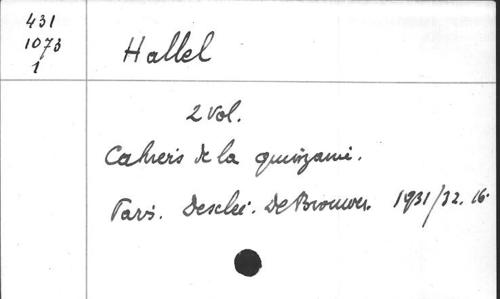 431
1073
1
Hallel
2 Vol.
Cahiers de la quinzaine.
Paris. Desclée. De Brouwer. 1931/32. 16.